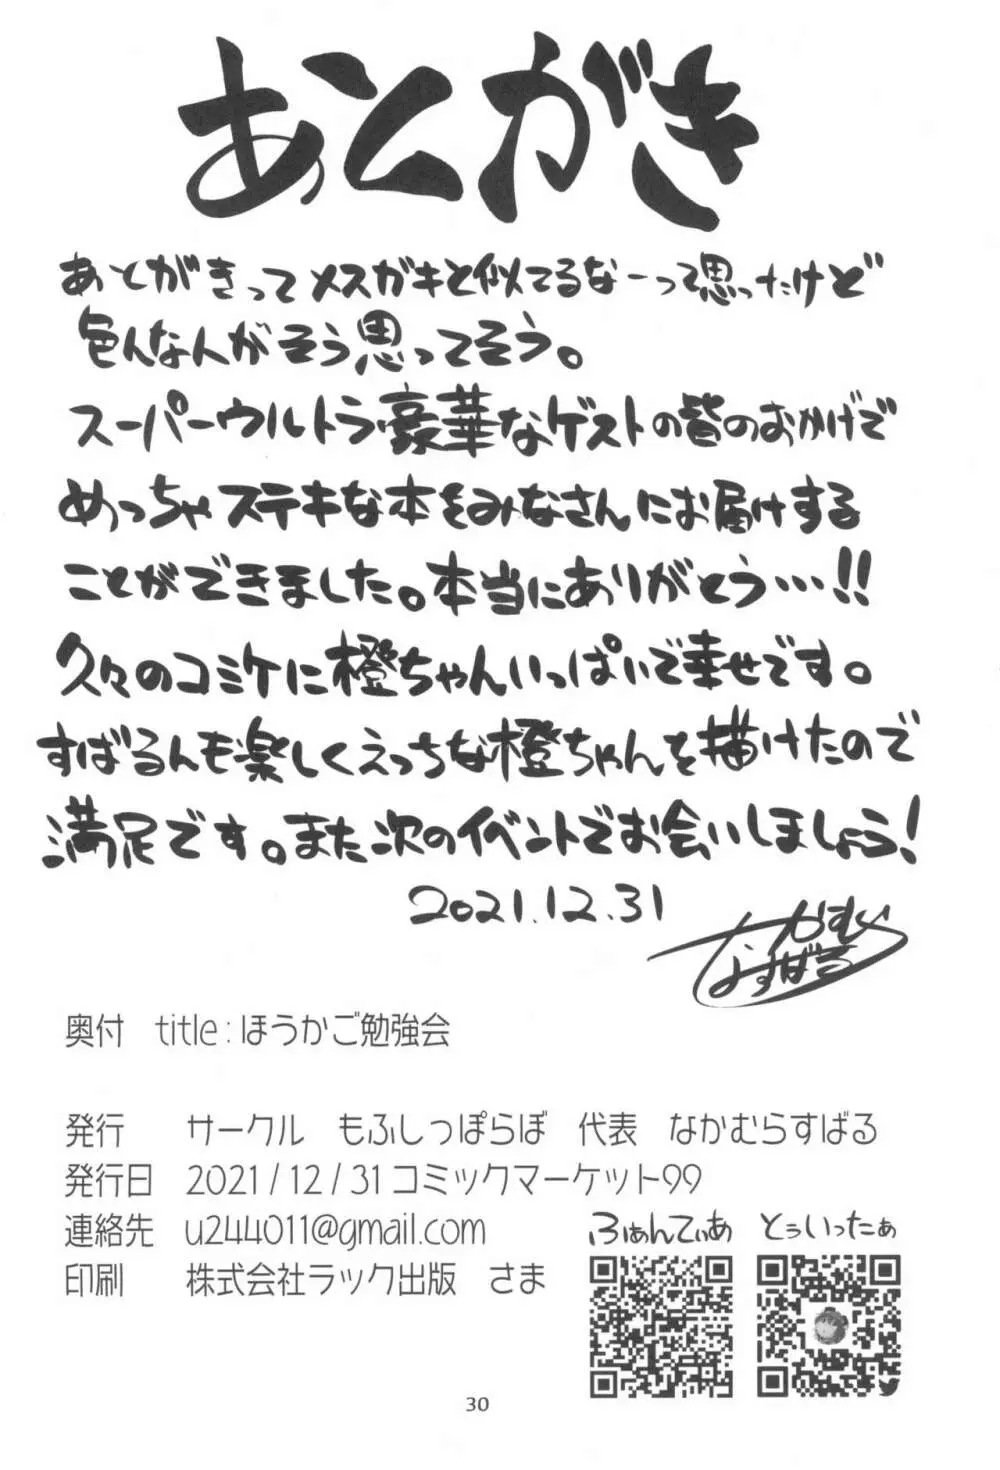 あとがき
あとがきってメスガキと似てるなーって思ったけど
色んな人がそう思ってそう。
スーパーウルトラ豪華なゲストの皆のおかげで
めっちゃステキな本をみなさんにお届けする
ことができました。本当にありがとう…!!
久々のコミケに橙ちゃんいっぱいで幸せです。
すばるんも楽しくえっちな橙ちゃんを描けたので
満足です。また次のイベントでお会いしましょう!
2021.12.31
なかむらすばる
奥付 title:ほうかご勉強会
発行 サークル もふしっぽらぼ 代表 なかむらすばる
発行日 2021/12/31コミックマーケット99
連絡先 u244011@gmail.com
印刷 株式会社ラック出版 さま
ふぁんてぃあ とぅいったぁ
30